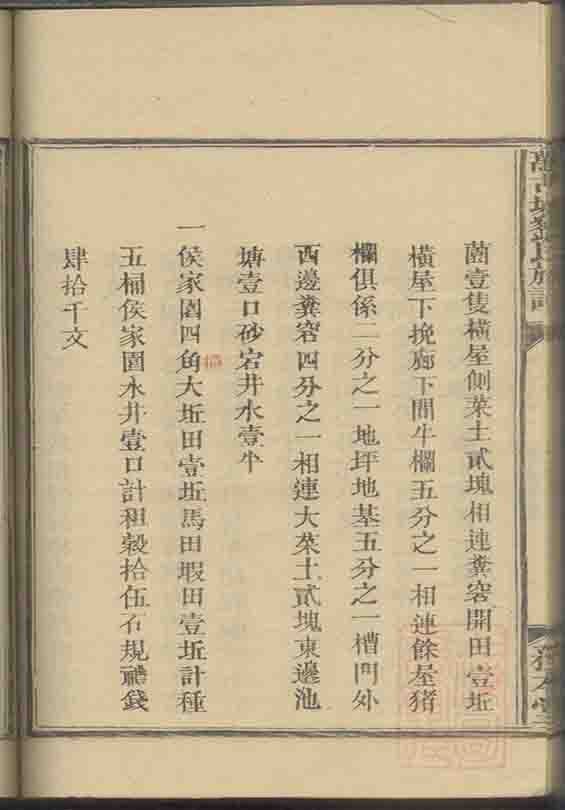 萬古塘劉氏族譜
菌壹隻橫屋側菜土貳塊相連糞窖開田壹坵
橫屋下挽廊下間牛欄五分之一相連餘屋豬
欄俱係二分之一地坪地基五分之一槽門外
西邊糞窖四分之一相連大菜土貳塊東邊池
塘壹口砂宕井水壹半
一侯家園四角大坵田壹坵馬田塅田壹坵計種
五桶侯家園水井壹口計租穀拾伍石規禮錢
肆拾千文